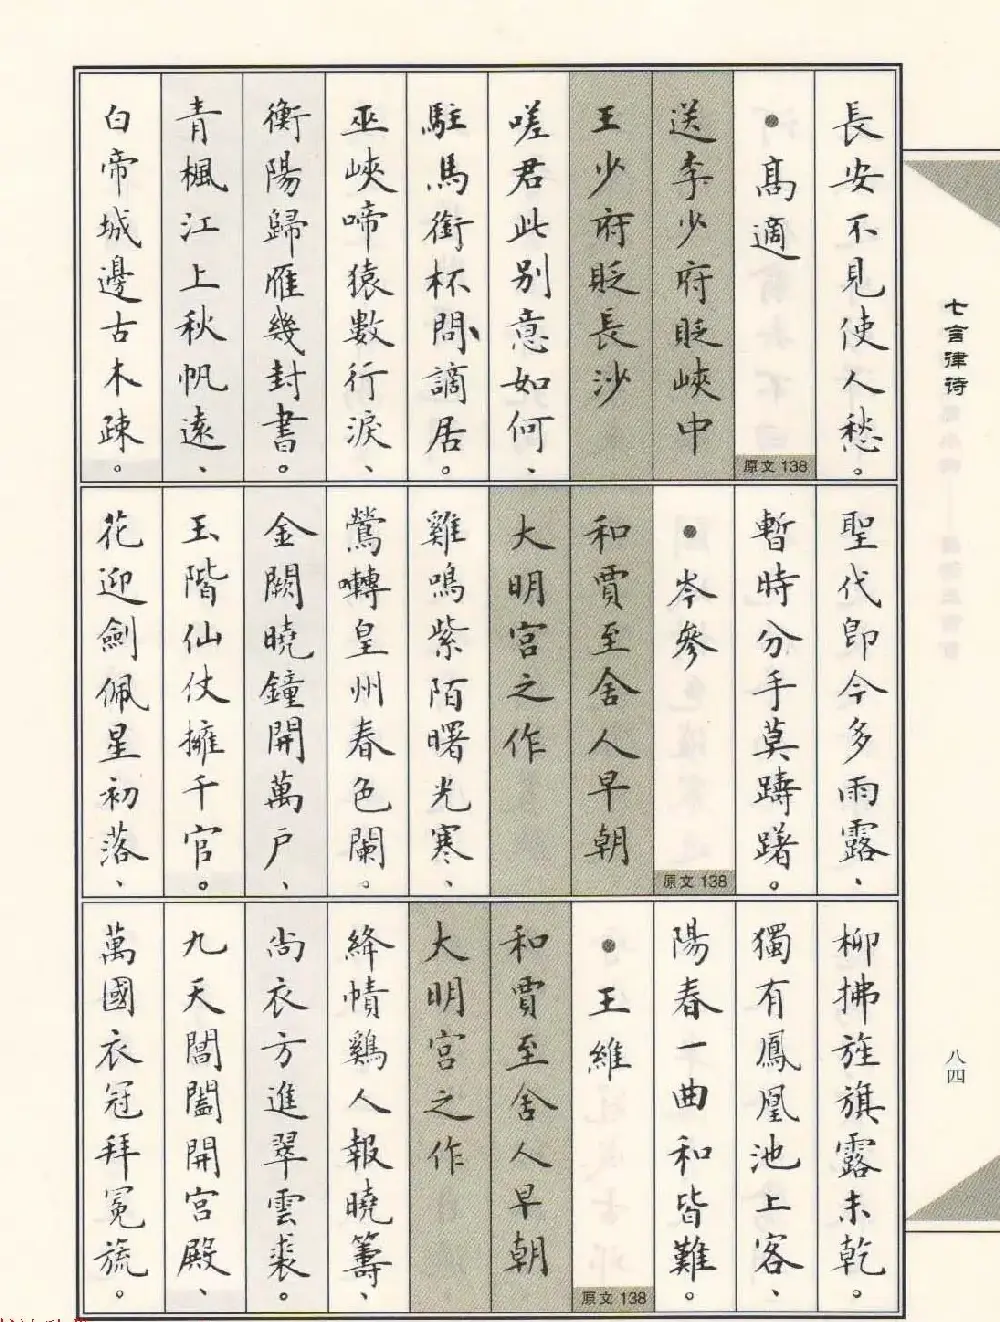 長安不見使人愁。
●高適
原文 138
送李少府貶峽中
王少府貶長沙
嗟君此别意如何、
駐馬銜杯問謫居。
巫峽啼猿數行淚、
衡陽歸雁幾封書。
青楓江上秋帆遠、
白帝城邊古木疎。
聖代即今多雨露、
暫時分手莫躊躇。
●岑參
原文 138
和賈至舍人早朝
大明宮之作
雞鳴紫陌曙光寒、
鶯囀皇州春色闌。
金闕曉鐘開萬户、
玉階仙仗擁千官。
花迎劍佩星初落、
柳拂旌旗露未乾。
獨有鳳凰池上客、
陽春一曲和皆難。
●王維
原文 138
和賈至舍人早朝
大明宮之作
絳幘鷄人報曉籌、
尚衣方進翠雲裘。
九天閶闔開宮殿、
萬國衣冠拜冕旒。
七言律诗
八四